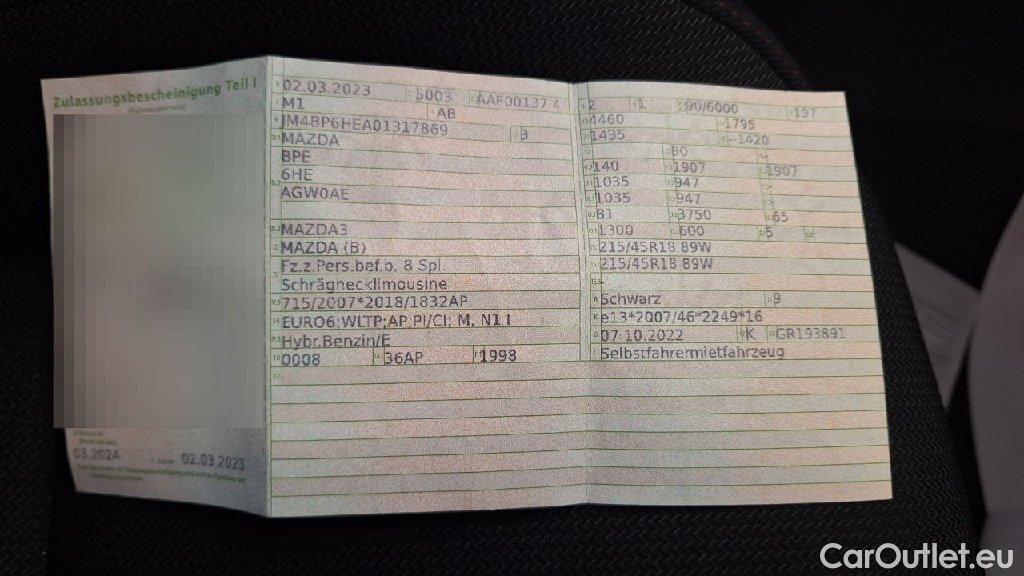 Zulassungsbescheinigung Teil I
03.2024 02.03.2023
02.03.2023 5003 AAF00137 4
M1 AB
JM4BP6HEA01317869 3
MAZDA
BPE
6HE
AGW0AE
MAZDA3
MAZDA (B)
Fz.z.Pers.bef.b. 8 Spl.
Schräghecklimousine
715/2007*2018/1832AP
EURO6;WLTP;AP,PI/CI; M, N1 I
Hybr.Benzin/E
0008 36AP 1998
2 1 90/6000 197
4460 1795
1435 1420
80
140 1907 1907
1035 947
1035 947
81 3750 65
1300 600 5
215/45R18 89W
215/45R18 89W
Schwarz 9
e13*2007/46*2249*16
07.10.2022 K GR193891
Selbstfahrermietfahrzeug
CarOutlet.eu